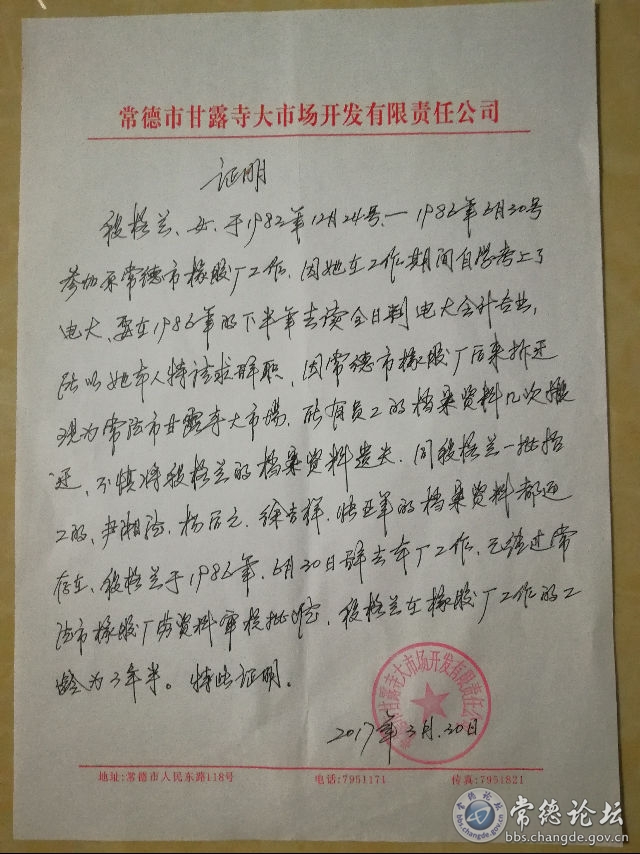 常德市甘露寺大市场开发有限责任公司
证明
段格兰、女、于1982年12月24号、一1986年6月30号
参加原常德市橡胶厂工作、因她在工作期间自学考上了
电大、要在1986年的下半年去读全日制电大会计专业,
所以她本人特请求辞职、因常德市橡胶厂后来拆迁
现为常德市甘露寺大市场、所有员工的档案资料几次搬
迁、不慎将段格兰的档案资料遗失、同段格兰一批招
工的、尹湘 杨 徐 的档案资料都还
存在、段格兰于1986年、6月30日辞去本厂工作、已经过常
德市橡胶厂劳资科审核批准、段格兰在橡胶厂工作的工
龄为3年半。特此证明。
常德市甘露寺大市场开发有限责任公司
2017年3月30日
地址:常德市人民东路118号 电话:7951171 传真:7951821
常德论坛
bbs.changde.gov.cn